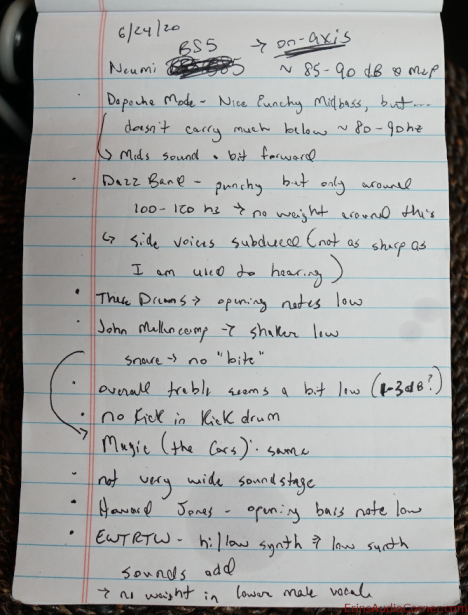 6/24/20
BS5 → on-axis
Neumi ~ 85-90 dB @ MLP
Depeche Mode - Nice Punchy Midbass, but...
doesn't carry much below ~ 80-90hz
↳ Mids sound a bit forward
• Dazz Band - punchy but only around
100-120 hz → no weight around this
↳ side voices subdued (not as sharp as
I am used to hearing)
• These Dreams → opening notes low
• John Mellencamp → shaker low
snare → no "bite"
• overall treble seems a bit low (1-3dB?)
• no kick in kick drum
Magic (the Cars): same
- not very wide soundstage
• Howard Jones - opening bass note low
• EWTRTW - hi/low synth → low synth
sounds odd
→ no weight in lower male vocals
ErinsAudioCorner.com